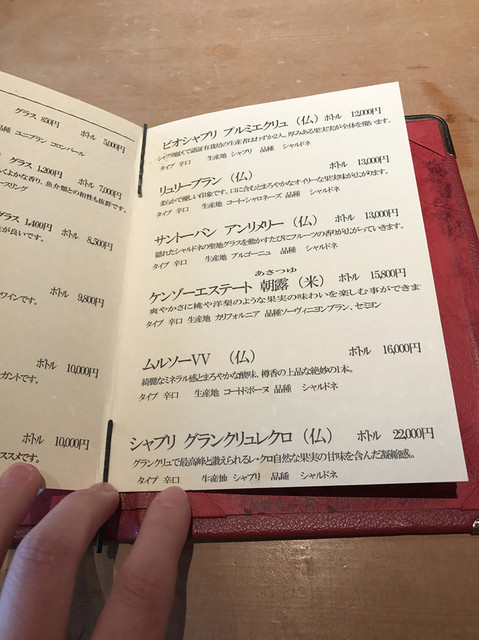 グラス 850円 ボトル 5,000円
品種 ユニブラン コロンバール
グラス 1,200円 ボトル 7,000円
くよかな香り、魚介類との相性も抜群です。
ースリング
グラス 1,400円 ボトル 8,500円
が良いです。
ボトル 9,800円
ワインです。
ボトル 10,000円
ガントです。
ボトル 10,000円
ススメです。
ビオシャブリ プルミエクリュ（仏）ボトル 12,000円
シャブリ地区で認証有栽培の生産者はわずか2人。厚みある果実実が全体を覆います。
タイプ 辛口 生産地 シャブリ 品種 シャルドネ
リュリーブラン（仏） ボトル 13,000円
柔らかで優しい印象です。口に含むとまろやかなオイリーな果実味が広がります。
タイプ 辛口 生産地 コート・シャロネーズ 品種 シャルドネ
サントーバン アンリメリー（仏） ボトル 13,000円
隠れたシャルドネの聖地グラスを動かすたびにフルーツの香りが広がっていきます。
タイプ 辛口 生産地 ブルゴーニュ 品種 シャルドネ
あさつゆ
ケンゾーエステート 朝露（米） ボトル 15,800円
爽やかさに桃や洋梨のような果実の味わいを楽しむ事ができま
タイプ 辛口 生産地 カリフォルニア 品種ソーヴィニヨンブラン、セミヨン
ムルソーVV （仏） ボトル 16,000円
綺麗なミネラル感とまろやかな酸味、樽香の上品な絶妙の1本。
タイプ 辛口 生産地 コートドボーヌ 品種 シャルドネ
シャブリ グランクリュレクロ（仏） ボトル 22,000円
グランクリュで最高峰と讃えられるレ・クロ自然な果実の甘味を含んだ凝縮感。
タイプ 辛口 生産地 シャブリ 品種 シャルドネ